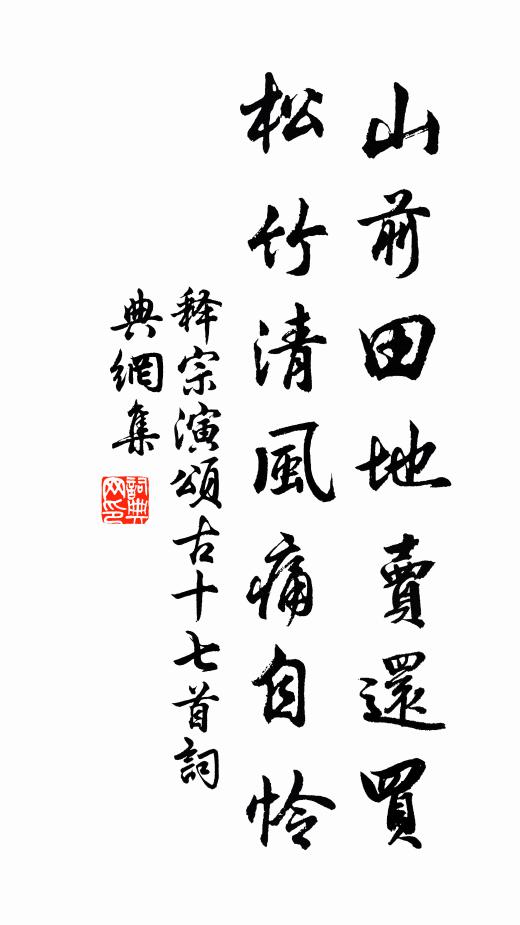 山前田地賣還買
松竹清風痛自怜
释宗演頌古十七首詞
典網集
詞典
网印